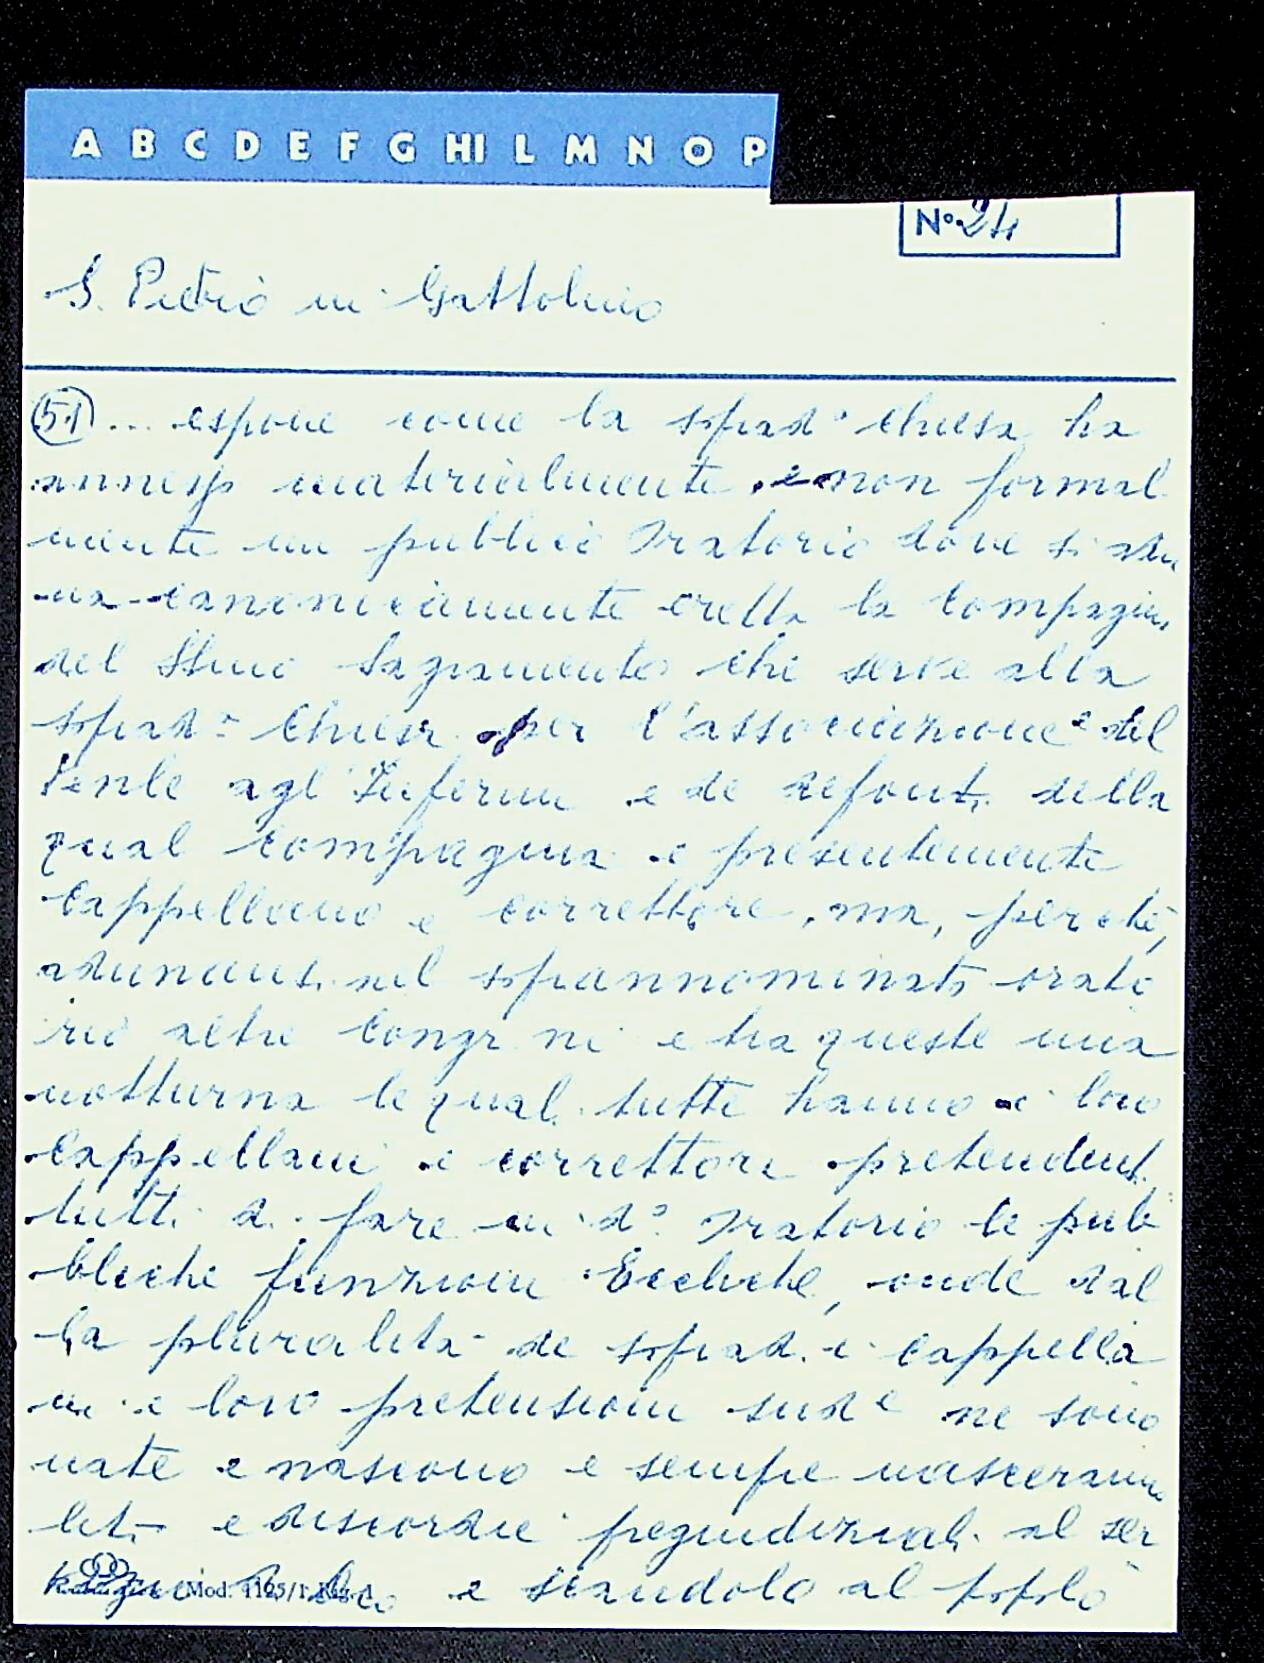 A B C D E F G HI L M N O P
N° 24
S. Pietro in Gattolino
(51) ... espone come la soprad.ª Chiesa ha
annesso materialmente, e non formal
mente un publico Oratorio dove si adu
na canonicamente eretta la Compagnia
del SSmo Sagramento che serve alla
soprad.ª Chiesa per l'associazione del
Venle agl'Infermi e de defonti, della
qual Compagnia è presentemente
Cappellano e correttore, ma, perchè,
adunansi nel soprannominato orato
rio altre Congr ni e tra queste una
notturna le quali tutte hanno i loro
Cappellani e correttori pretendenti
tutti di fare in d° Oratorio le pub
bliche funzioni Eccliche, onde dal
la pluralità de soprad.i cappella
ni e loro pretensioni sudᵉ ne sono
nate e nascono e sempre nasceranno
liti e discordie pregiudiziali al ser
Mod. 1195/1 e scandolo al popolo